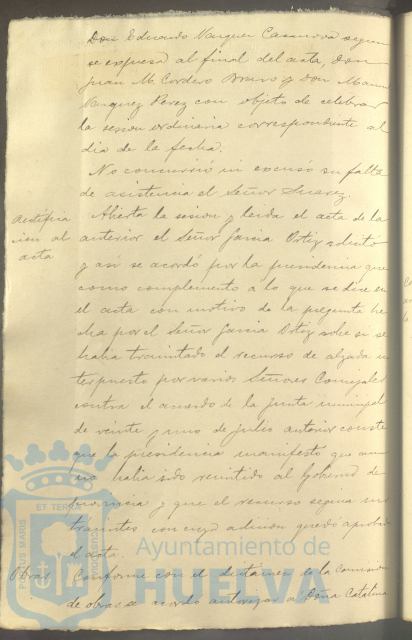 Don Eduardo Vazquez Casanova segun
se expresa al final del acta, Don
Juan M. Cordero Bravo y Don Manuel
Vazquez Perez con objeto de celebrar
la sesion ordinaria correspondiente al
dia de la fecha.
No concurrió ni excusó su falta
de asistencia el Señor Suarez.
Abierta la sesion y leida el acta de la
anterior el Señor Garcia Ortiz solicitó
y así se acordó por la presidencia que
como complemento a lo que se dice en
el acta con motivo de la pregunta he
cha por el Señor Garcia Ortiz sobre si se
habia tramitado el recurso de alzada in
terpuesto por varios Señores Concejales
contra el acuerdo de la Junta municipal
de veinte y uno de Julio anterior conste
que la presidencia manifestó que aun
no habia sido remitido al Gobierno de
provincia y que el recurso seguia sus
tramites con cuya adicion quedó aprobada
el acta.
Conforme con el dictamen de la comision
de obras se acordó autorizar a Doña Catalina
acta
Obras
ET TERRAE
PORTUS MARIS
CUSTODIA
Ayuntamiento de
HUELVA